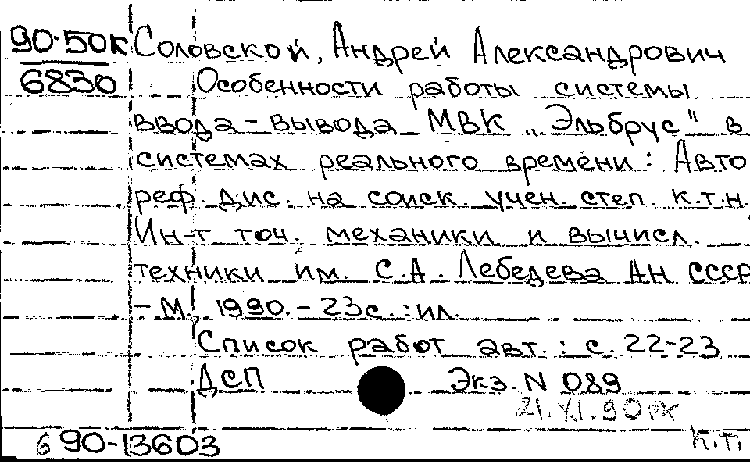 90-50к Соловской, Андрей Александрович
6830 Особенности работы системы
ввода-вывода МВК „Эльбрус" в
системах реального времени: Авто
реф. дис. на соиск. учен. степ. к.т.н.
Ин-т точ. механики и вычисл.
техники им. С.А. Лебедева АН СССР
- М., 1990. - 23с.: ил.
Список работ авт.: с. 22-23
ДСП Экз. N 089
21.XI.90
6 90-13603 К.Т.